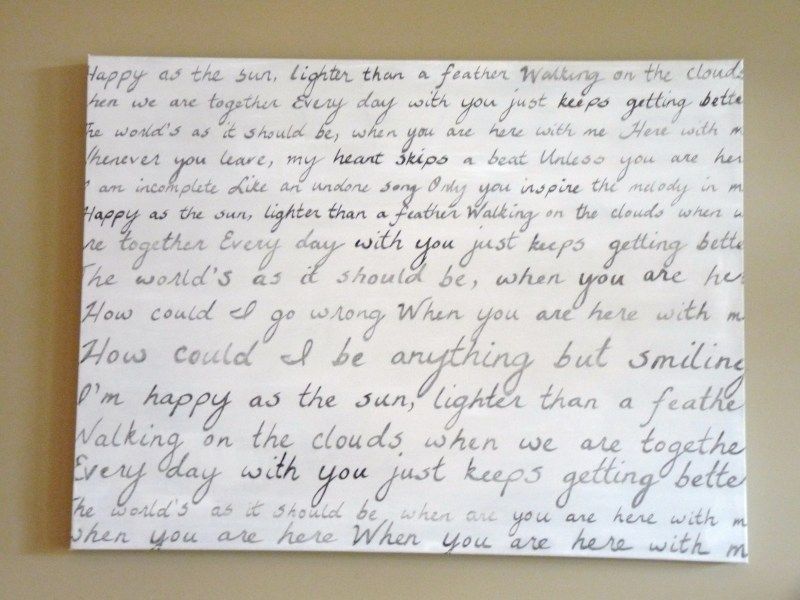 Happy as the sun, lighter than a feather Walking on the clouds
hen we are together Every day with you just keeps getting bette
The world's as it should be, when you are here with me Here with m
Whenever you leave, my heart skips a beat Unless you are her
I am incomplete Like an undone song Only you inspire the melody in m
Happy as the sun, lighter than a feather Walking on the clouds when w
re together Every day with you just keeps getting bette
The world's as it should be, when you are her
How could I go wrong When you are here with m
How could I be anything but smiling
I'm happy as the sun, lighter than a feathe
Walking on the clouds when we are togethe
Every day with you just keeps getting bette
The world's as it should be when are you are here with m
when you are here When you are here with m